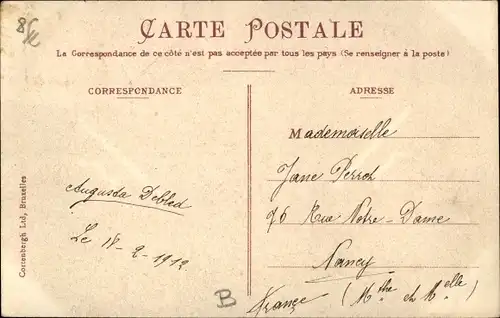 CARTE POSTALE
La Correspondance de ce côté n'est pas acceptée par tous les pays (Se renseigner à la poste)
CORRESPONDANCE
ADRESSE
Mademoiselle
Jane Perrot
76 Rue Notre-Dame
Nancy
(Mthe et Melle)
France
Augusta Debled
Le 18-2-1912
Cortenbergh Ltd, Bruxelles
B